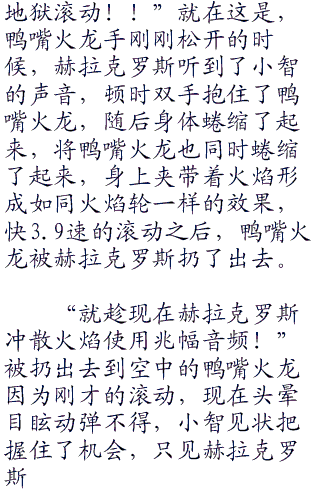 地狱滚动！！”就在这是，
鸭嘴火龙手刚刚松开的时
候，赫拉克罗斯听到了小智
的声音，顿时双手抱住了鸭
嘴火龙，随后身体蜷缩了起
来，将鸭嘴火龙也同时蜷缩
了起来，身上夹带着火焰形
成如同火焰轮一样的效果，
快3.9速的滚动之后，鸭嘴火
龙被赫拉克罗斯扔了出去。
“就趁现在赫拉克罗斯
冲散火焰使用兆幅音频！”
被扔出去到空中的鸭嘴火龙
因为刚才的滚动，现在头晕
目眩动弹不得，小智见状把
握住了机会，只见赫拉克罗
斯